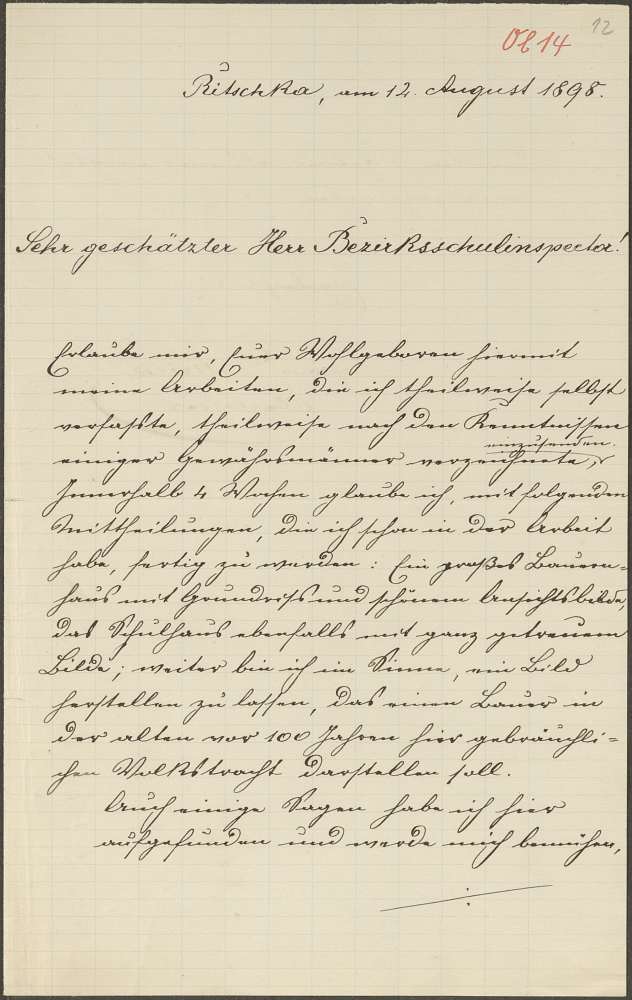 12
Ob 14
Ritschka, am 12. August 1898.
Sehr geschätzter Herr Bezirksschulinspector!
Erlaube mir, Euer Wohlgeboren hiermit
meine Arbeiten, die ich theilweise selbst
verfasste, theilweise nach den Kenntnissen
einzusenden.
einiger Gewährsmänner verzeichnete,
Innerhalb 4 Wochen glaube ich, mit folgenden
Mittheilungen, die ich schon in der Arbeit
habe, fertig zu werden: Ein großes Bauern-
haus mit Grundriss und schönem Ansichtsbilde,
das Schulhaus ebenfalls mit ganz getreuem
Bilde; weiter bin ich im Sinne, ein Bild
herstellen zu lassen, das einen Bauer in
der alten vor 100 Jahren hier gebräuchli-
chen Volkstracht darstellen soll.
Auch einige Sagen habe ich hier
aufgefunden und werde mich bemühen,